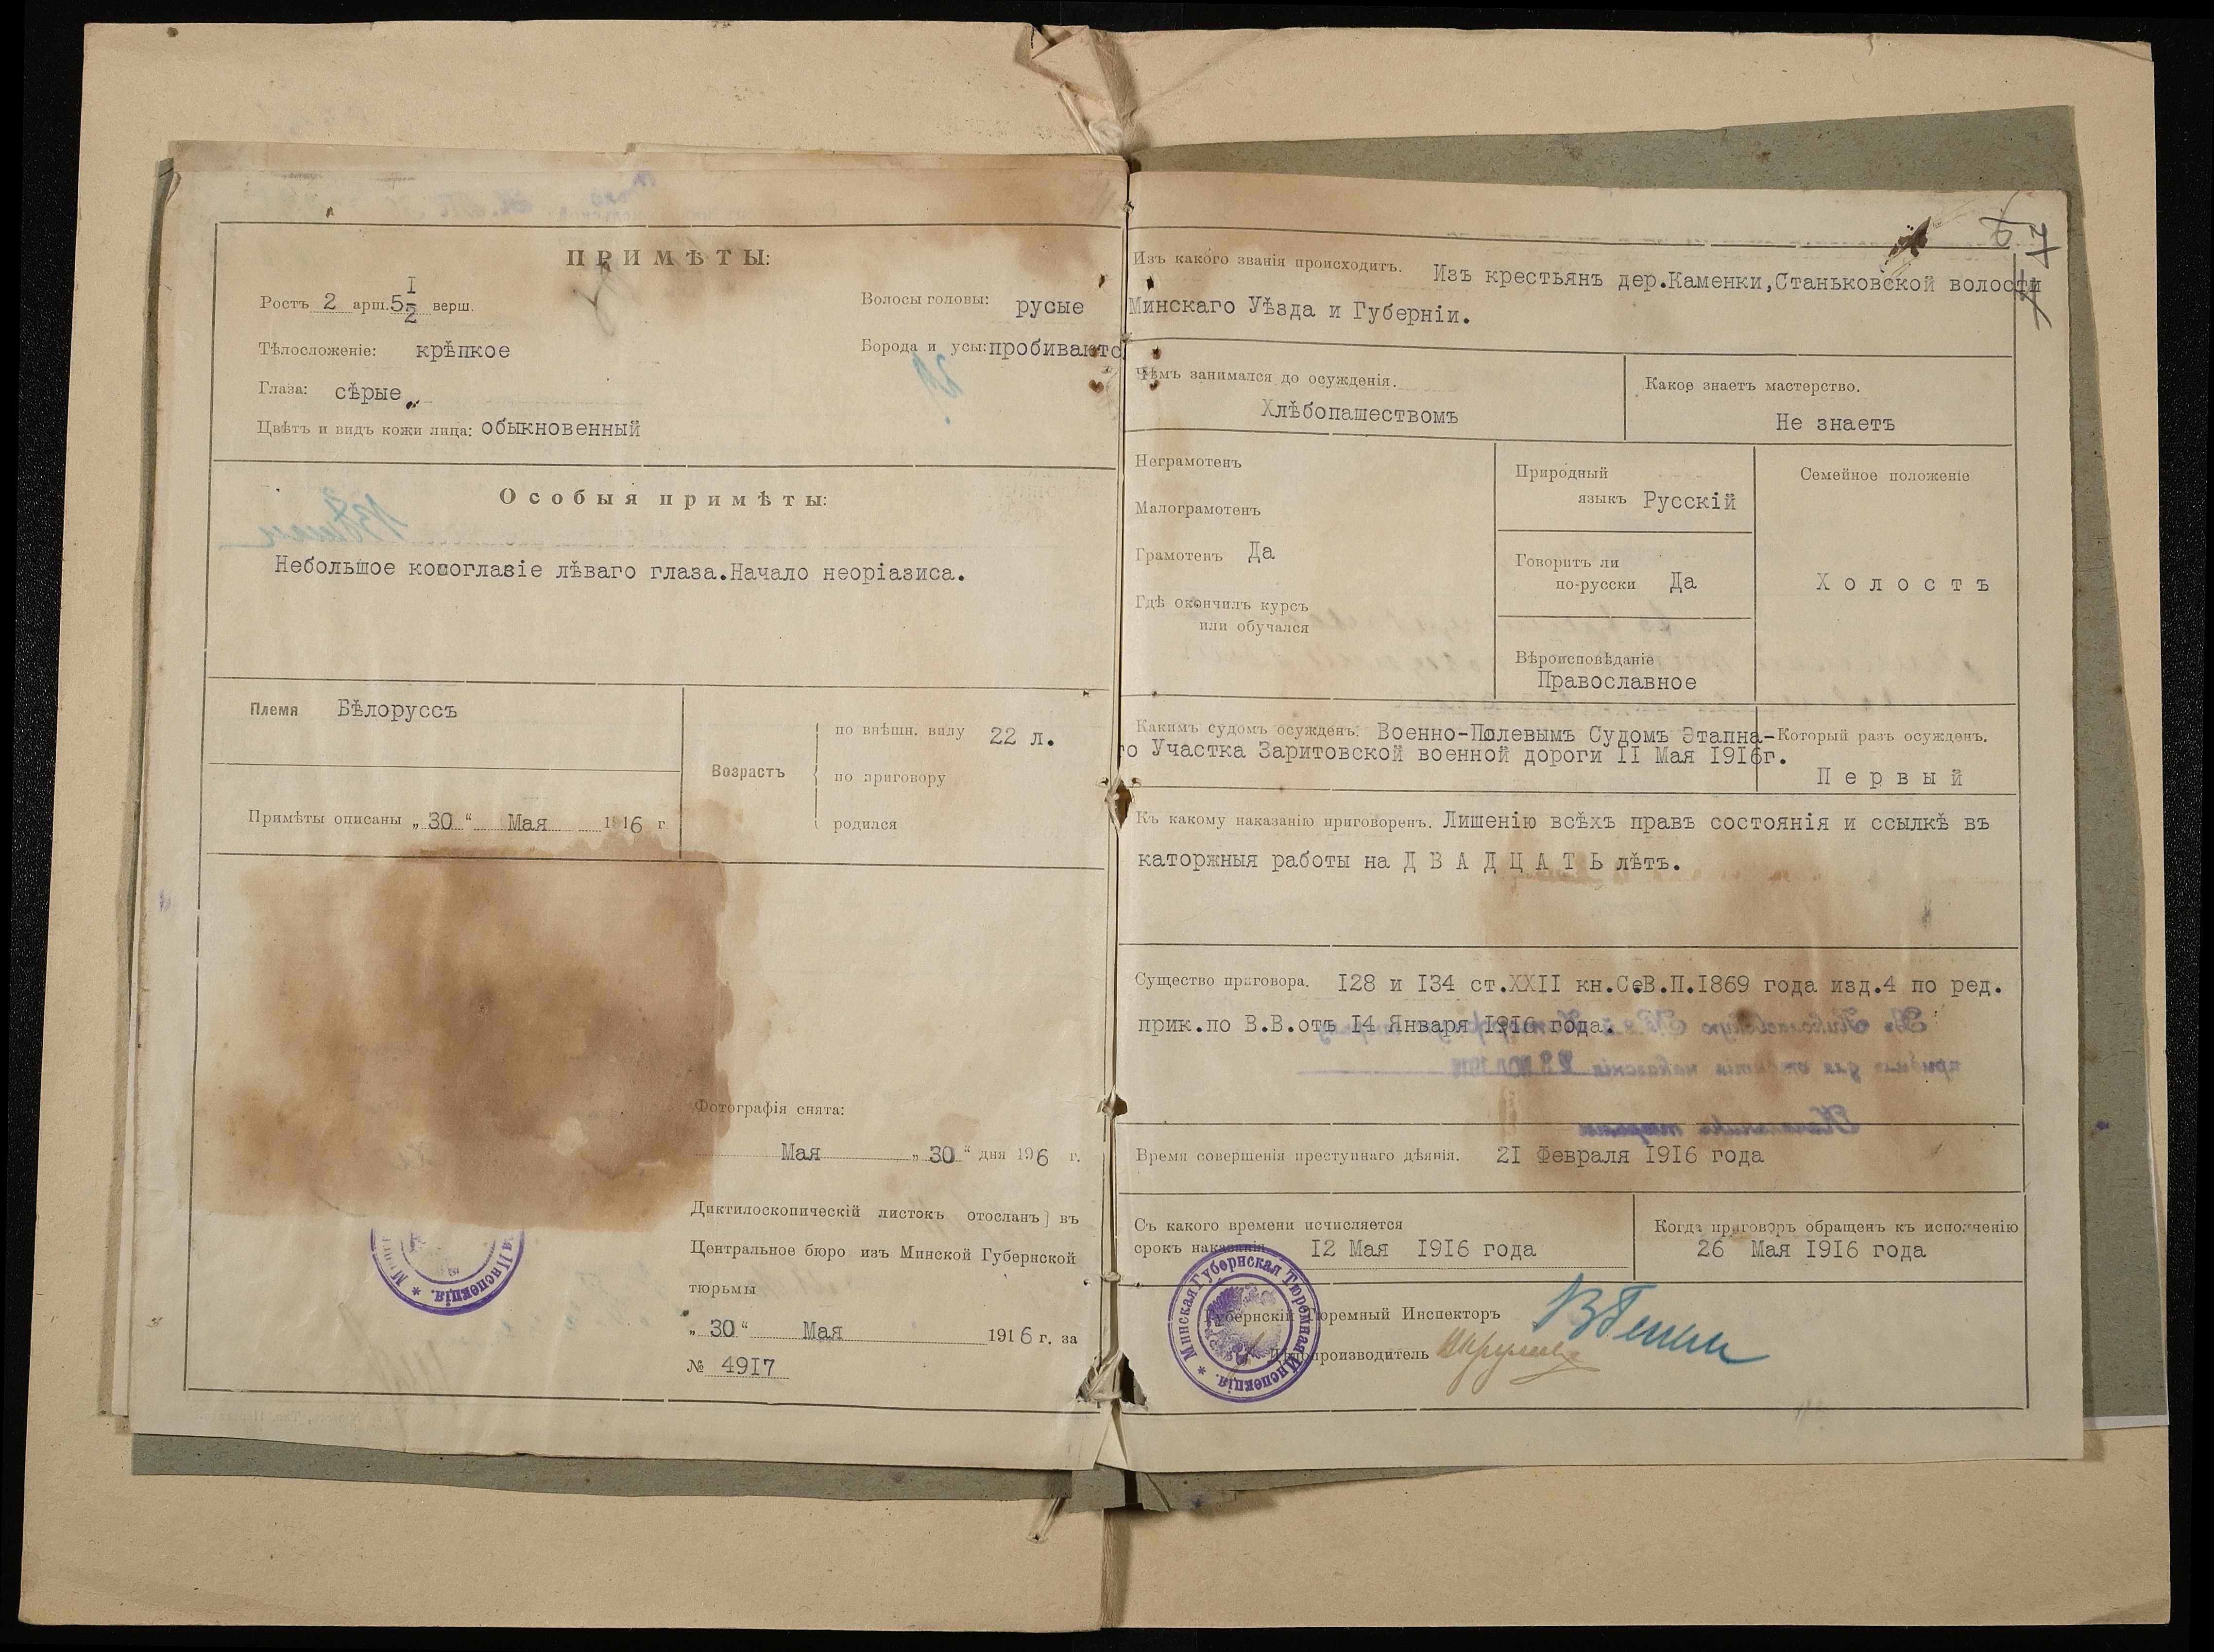 ПРИМѢТЫ:
Ростъ 2 арш. 5 1/2 верш.
Волосы головы: русые
Тѣлосложеніе: крѣпкое
Борода и усы: пробиваютс
Глаза: сѣрые
Цвѣтъ и видъ кожи лица: обыкновенный
Особыя примѣты:
Небольшое косоглазіе лѣваго глаза.Начало неоріазиса.
Племя Бѣлоруссъ
Возрастъ
по внѣшн. виду 22 л.
по приговору
родился
Примѣты описаны „30“ Мая 1916 г
Фотографія снята:
Мая „30“ дня 196 г.
Диктилоскопическій листокъ отосланъ въ
Центральное бюро изъ Минской Губернской
тюрьмы
„30“ Мая 1916 г. за
№ 4917
7
Изъ какого званія происходитъ. Изъ крестьянъ дер.Каменки,Станьковской волости
Минскаго Уѣзда и Губерніи.
Чѣмъ занимался до осужденія.
Хлѣбопашествомъ
Какое знаетъ мастерство.
Не знаетъ
Неграмотенъ
Малограмотенъ
Грамотенъ Да
Гдѣ окончилъ курсъ
или обучался
Природный
языкъ Русскій
Говоритъ ли
по-русски Да
Вѣроисповѣданіе
Православное
Семейное положеніе
Холостъ
Какимъ судомъ осужденъ. Военно-Полевымъ Судомъ Этапна-
го Участка Заритовской военной дороги II Мая 1916г.
Который разъ осужденъ.
Первый
Къ какому наказанію приговоренъ. Лишенію всѣхъ правъ состоянія и ссылкѣ въ
каторжныя работы на ДВАДЦАТЬ лѣтъ.
Существо приговора. I28 и I34 ст.XXII кн.С.В.П.I869 года изд.4 по ред.
прик.по В.В.отъ I4 Января I9I6 года.
Время совершенія преступнаго дѣянія. 2I Февраля I9I6 года
Съ какого времени исчисляется
срокъ наказанія. I2 Мая I9I6 года
Когда приговоръ обращенъ къ исполненію
26 Мая I9I6 года
Губернскій Тюремный Инспекторъ
Дѣлопроизводитель
Минская Губернская Тюремная Инспекція.